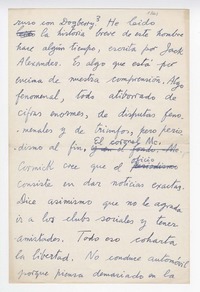 ruso con Dogberry? He leído
la historia breve de este hombre
hace algún tiempo, escrita por Jack
Alexander. Es algo que está por
encima de nuestra comprensión. Algo
fenomenal, todo atiborrado de
cifras enormes, de disputas feno-
menales y de triunfos, pero perio-
dismo al fin. El coronel Mc.
Cormick cree que el oficio
consiste en dar noticias exactas.
Dice asimismo que no le agrada
ir a los clubs sociales y tener
amistades. Todo eso coharta
la libertad. No conduce automóvil
porque piensa demasiado en la